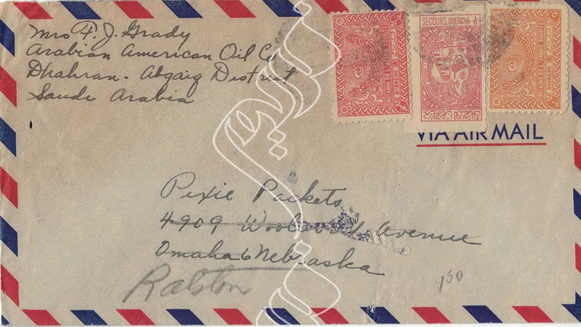 Mrs F. J. Grady
Arabian American Oil Co
Dhahran - Abqaiq District
Saudi Arabia
SECOURS
VIA AIR MAIL
Pixie Packets
4909 Avenue
Omaha 6 Nebraska
Ralston
150